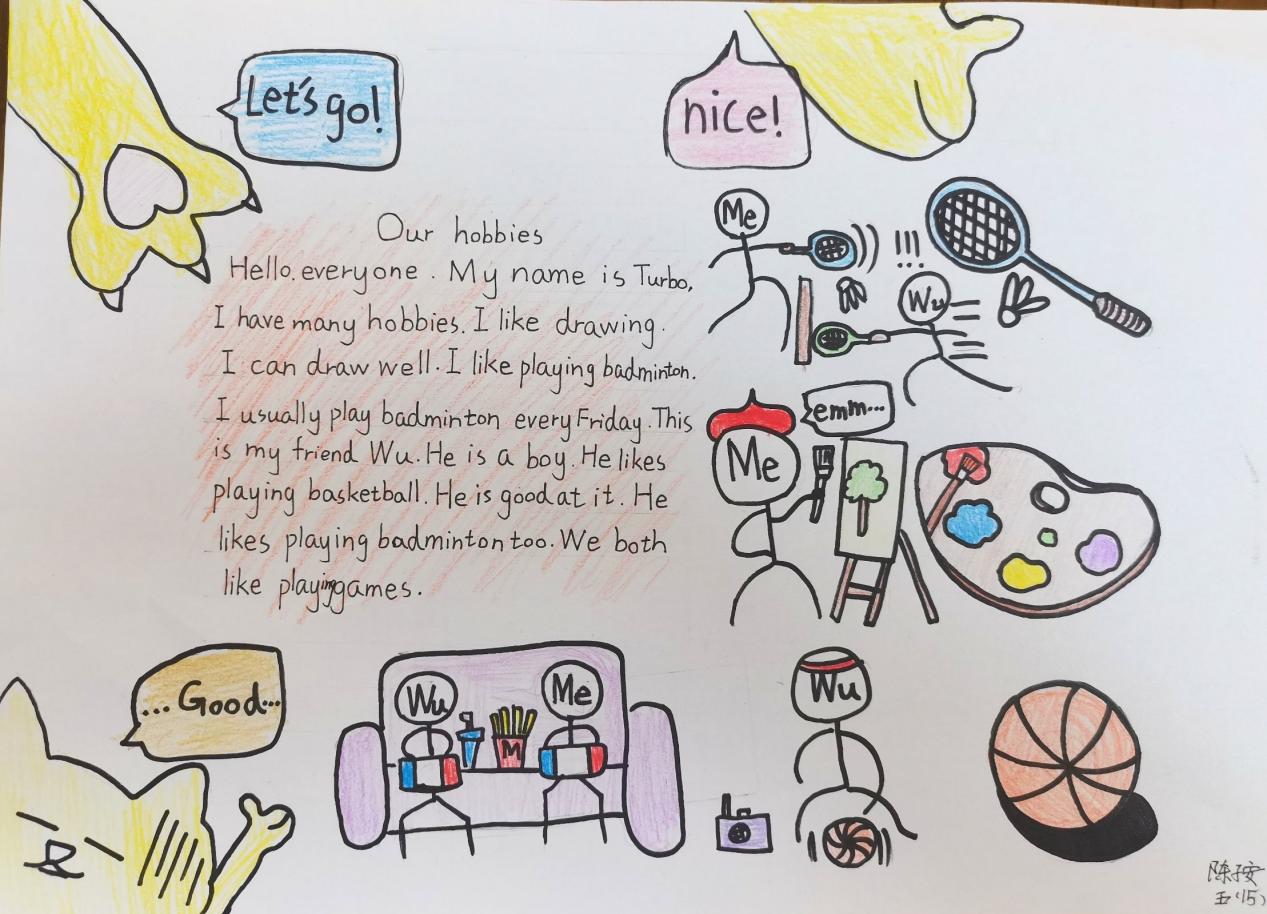 Let's go!
nice!
Our hobbies
Hello, everyone. My name is Turbo,
I have many hobbies. I like drawing.
I can draw well. I like playing badminton.
I usually play badminton every Friday. This
is my friend Wu. He is a boy. He likes
playing basketball. He is good at it. He
likes playing badminton too. We both
like playing games.
Me
!!!
Wu
emm...
Me
... Good...
Wu
Me
M
Wu
五(15)